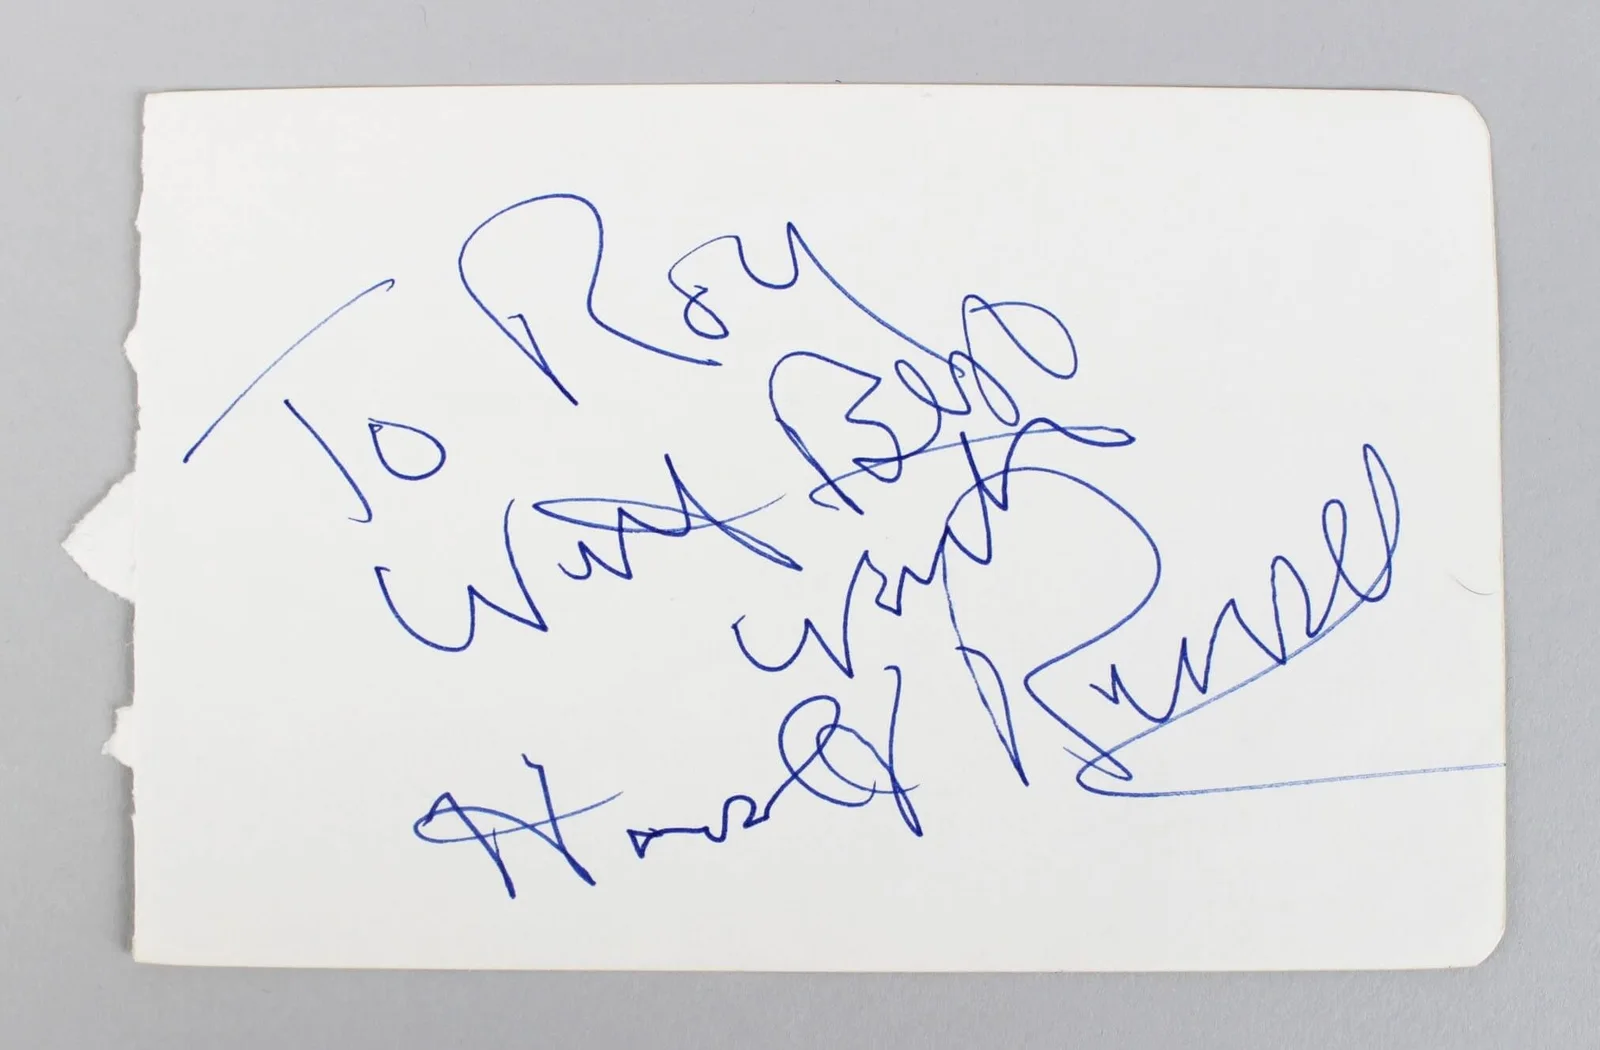 To Roy
With Best
Wishes
Harold Russell